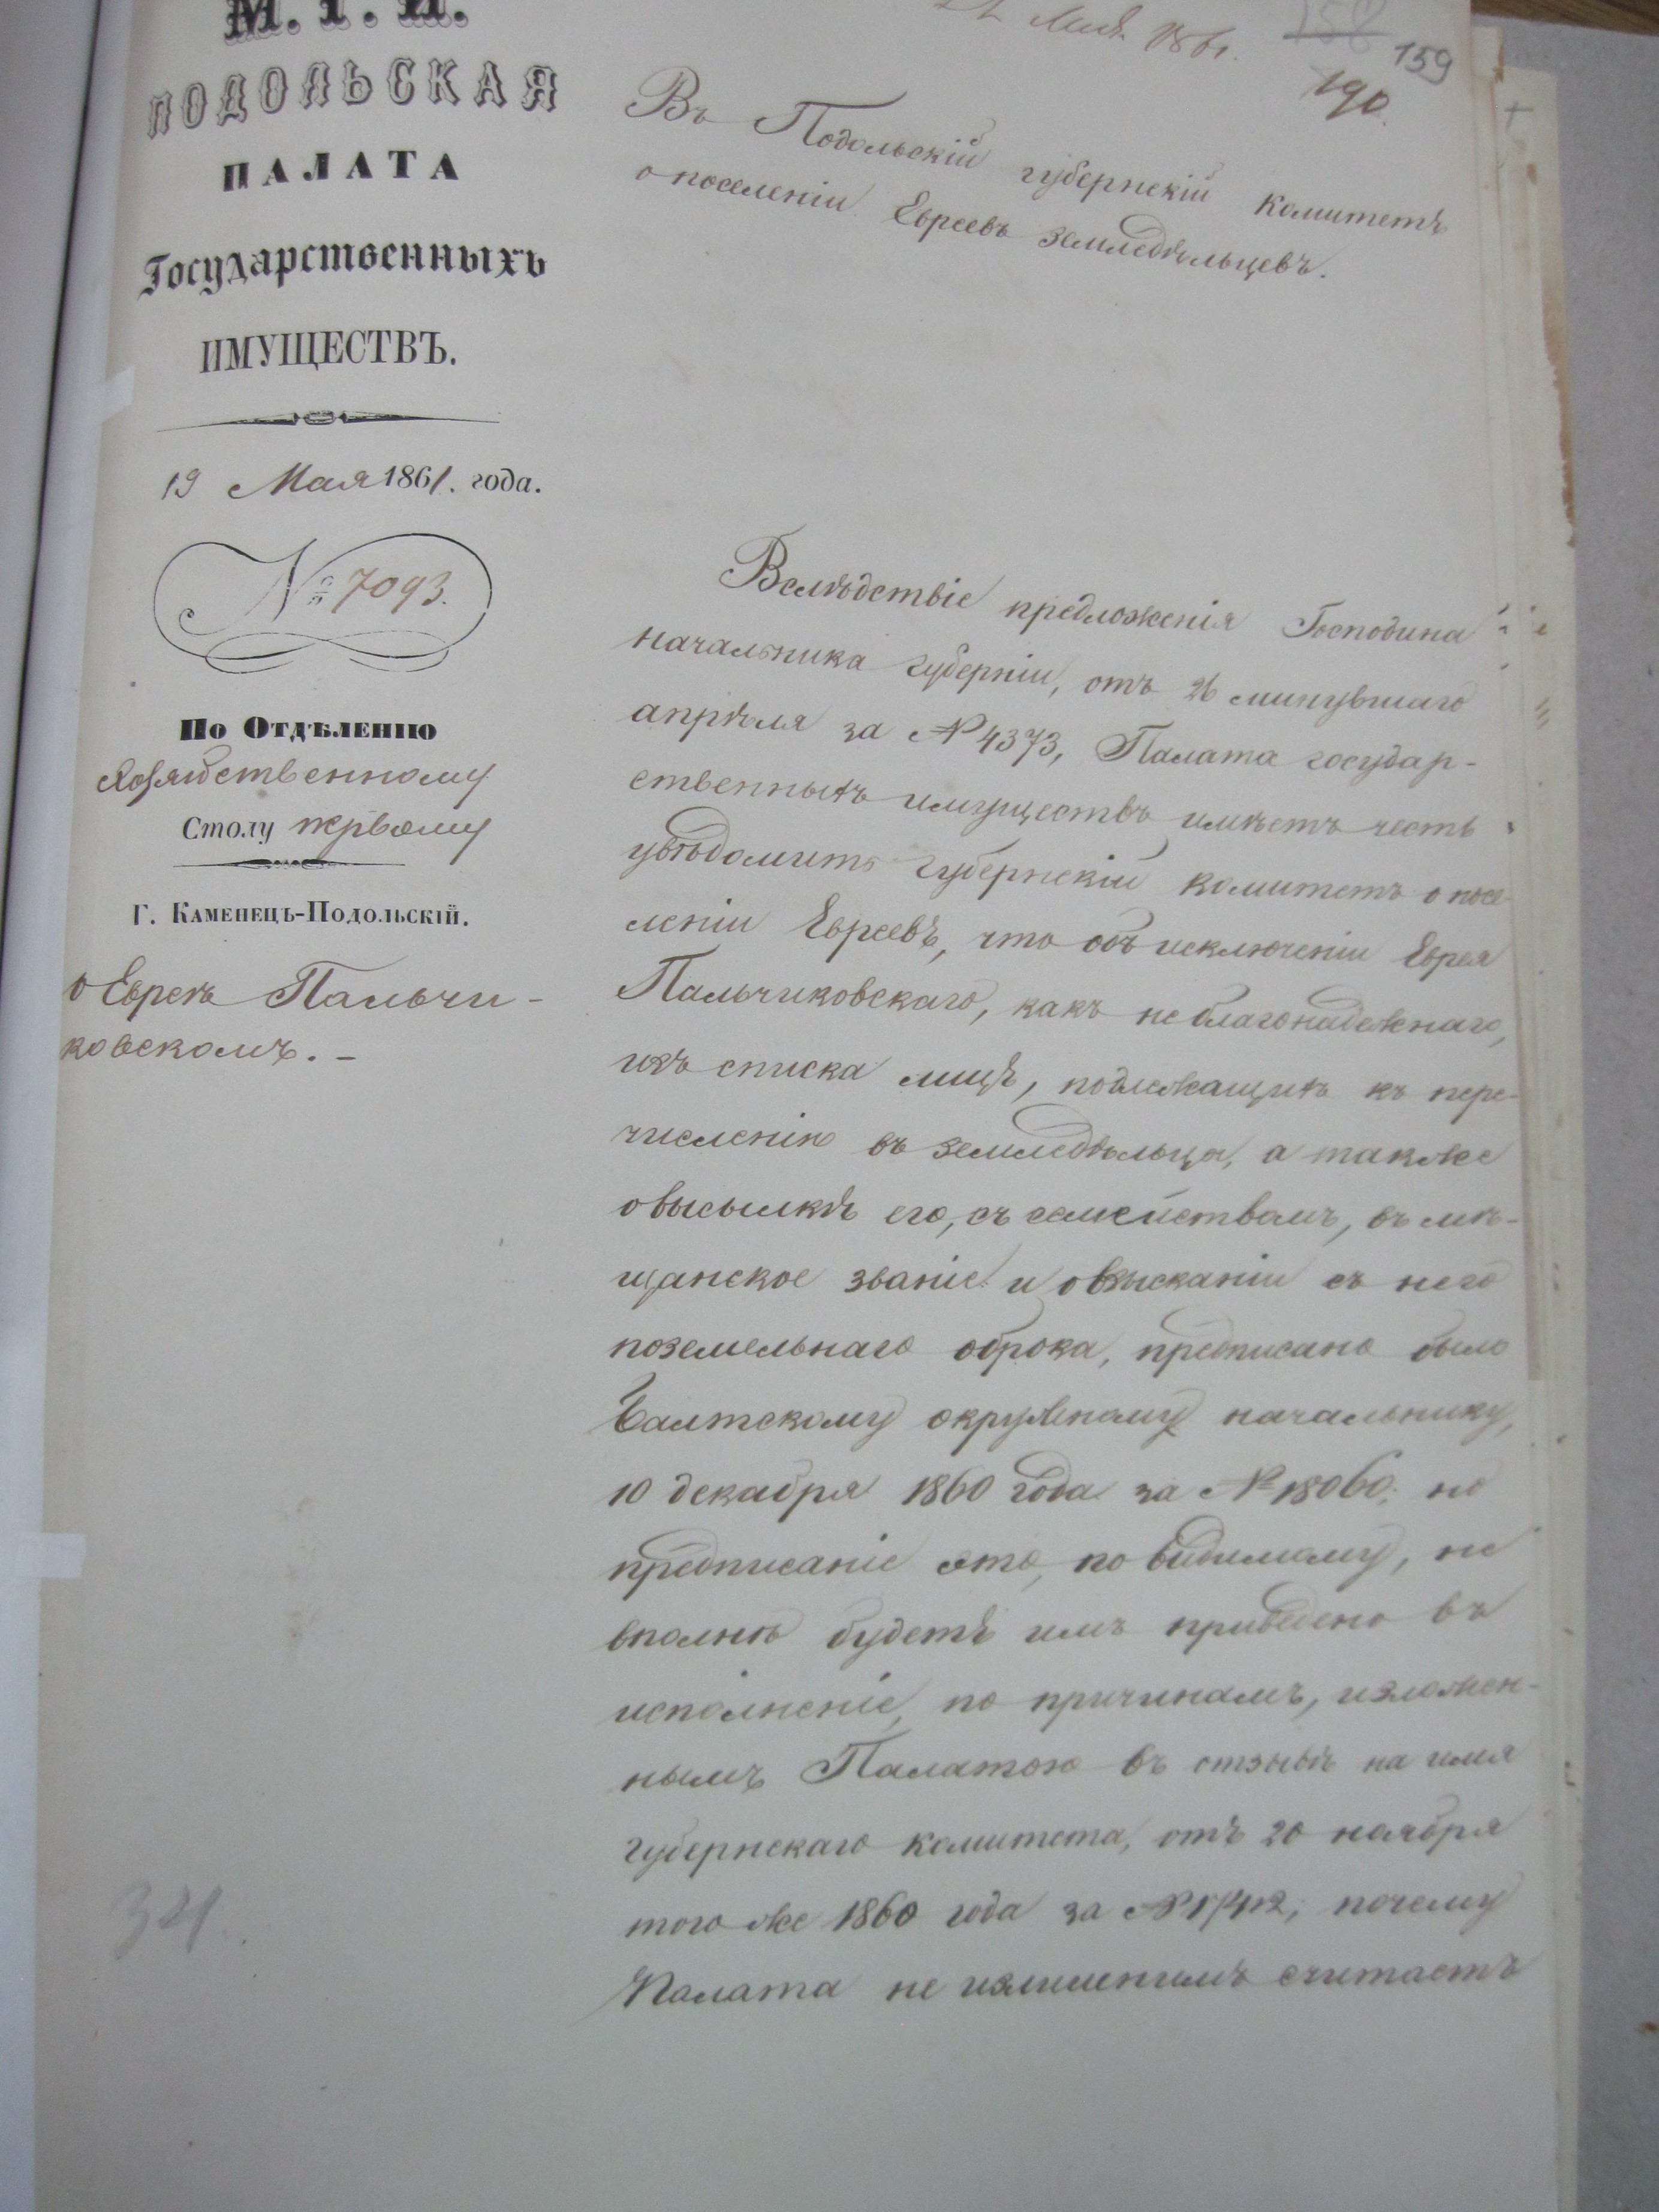 М. Г. И.
ПОДОЛЬСКАЯ
ПАЛАТА
Государственныхъ
ИМУЩЕСТВЪ.
19 Мая 1861. года.
№ 7093.
По Отдѣленію
Хозяйственному
Столу первому
Г. Каменецъ-Подольскій.
о Евреѣ Пальчи-
ковскомъ. –
34.
Мая 1861.
158
159
190.
Въ Подольскій губернскій комитетъ
о поселеніи Евреевъ земледѣльцевъ.
Вслѣдствіе предложенія Господина
начальника губерніи, отъ 26 минувшаго
апрѣля за № 4373, Палата государ-
ственныхъ имуществъ имѣетъ честь
увѣдомить губернскій комитетъ о посе-
леніи Евреевъ, что объ исключеніи Еврея
Пальчиковскаго, какъ не благонадежнаго,
изъ списка лицъ, подлежащихъ къ пере-
численію въ земледѣльцы, а также
о высылкѣ его, съ семействомъ, въ мѣ-
щанское званіе и о взысканіи съ него
поземельнаго оброка, предписано было
Балтскому окружному начальнику,
10 декабря 1860 года за № 18060; но
предписаніе это, по видимому, не
вполнѣ будетъ имъ приведено въ
исполненіе, по причинамъ, изложен-
нымъ Палатою въ отзывѣ на имя
губернскаго комитета, отъ 20 ноября
того же 1860 года за № 17412; почему
Палата не излишнимъ считаетъ